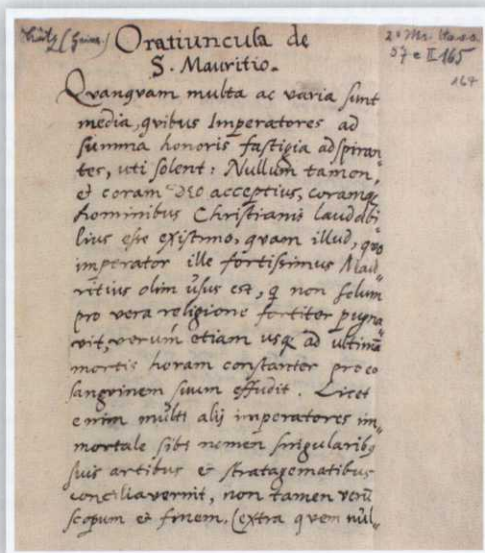 Oratiuncula de
S. Mauritio.
2° Ms. Hass.
57 e II 165
164
Quanquam multa ac varia sunt
media, quibus Imperatores ad
summa honoris fastigia adspiran„
tes, uti solent: Nullum tamen,
et coram DEO acceptius, coramq̃
hominibus Christianis laudabi„
lius esse existimo, quam illud, quo
imperator ille fortissimus Mau„
ritius olim usus est, q̃ non solum
pro vera religione fortiter pugna„
vit, verum etiam usq̃ ad ultimã
mortis horam constanter pro eo
sanguinem suum effudit. Licet
enim multi alij imperatores im„
mortale sibi nomen singularibq
suis artibus et stratagematibus
conciliaverint, non tamen verũ
scopum et finem, (extra quem nul„